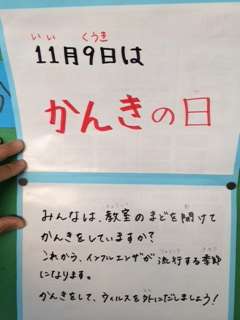 いい くうき
11月9日は
かんきの日
みんなは、教室のまどを開けて
かんきをしていますか?
これから、インフルエンザが流行する季節
になります。
かんきをして、ウィルスを外にだしましょう!